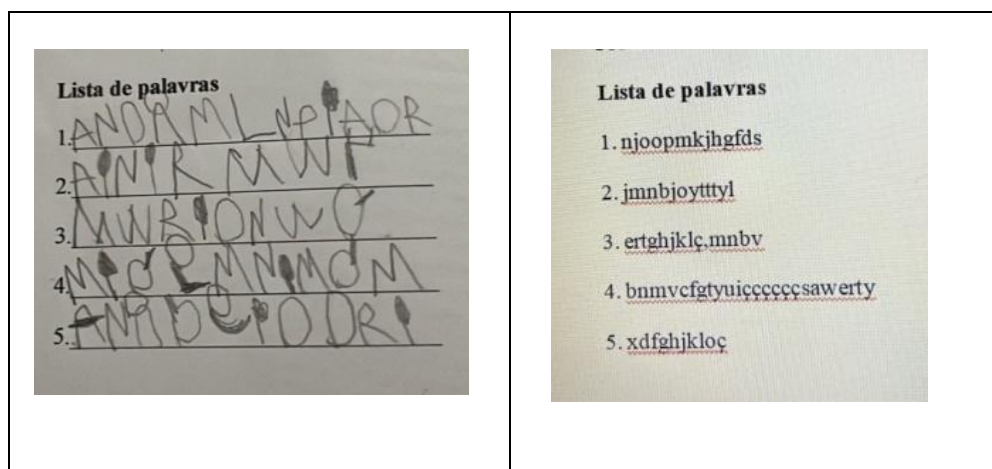 Lista de palavras
1. ANDRMLNPIAOR
2. AINIR MWF
3. MWRIONWO
4.
5.
Lista de palavras
1. njoopmkjhgfds
2. jmnbjoytttyl
3. ertghjklç,mnbv
4. bnmvcfgtyuiççççççsawerty
5. xdfghjkloç